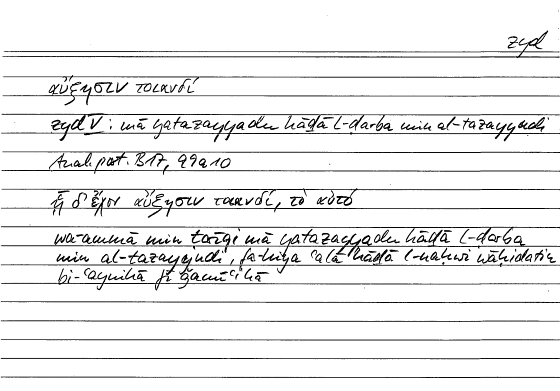 zyd
αὔξησιν τοιανδί
zyd V : mā yatazayyadu hāḏā l-ḍarba min al-tazayyudi
Anal. post. B17, 99a10
ᾗ δ' ἔχον αὔξησιν τοιανδί, τὸ αὐτό
wa-ammā min ṭarīqi mā yatazayyadu hāḏā l-ḍarba
min al-tazayyudi, fa-hiya ʿalā hāḏā l-naḥwi wāḥidatun
bi-ʿaynihā fī ǧamīʿihā